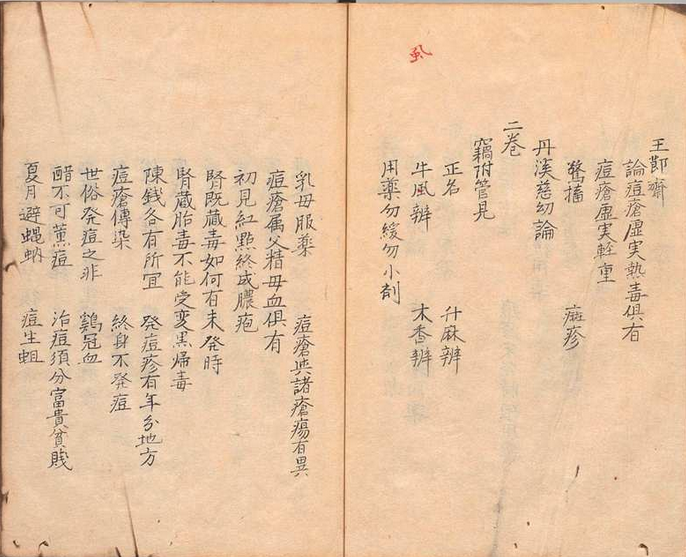 王節齋
論痘瘡虛実熱毒俱有
痘瘡虛実軽重
驚搐 痲疹
丹溪慈幼論
二卷
竊附管見
正名 升麻辨
牛風辨 木香辨
用薬勿緩勿小剤
乳母服薬 痘瘡與諸瘡瘍有異
痘瘡属父精母血俱有
初見紅點終成膿疱
腎既藏毒如何有未発時
腎藏胎毒不能受変黒歸毒
陳錢各有所宜 発痘疹有年分地方
痘瘡傳染 終身不発痘
世俗発痘之非 鷄冠血
醋不可薫痘 治痘須分富貴貧賤
夏月避蝿蚋 痘生蛆